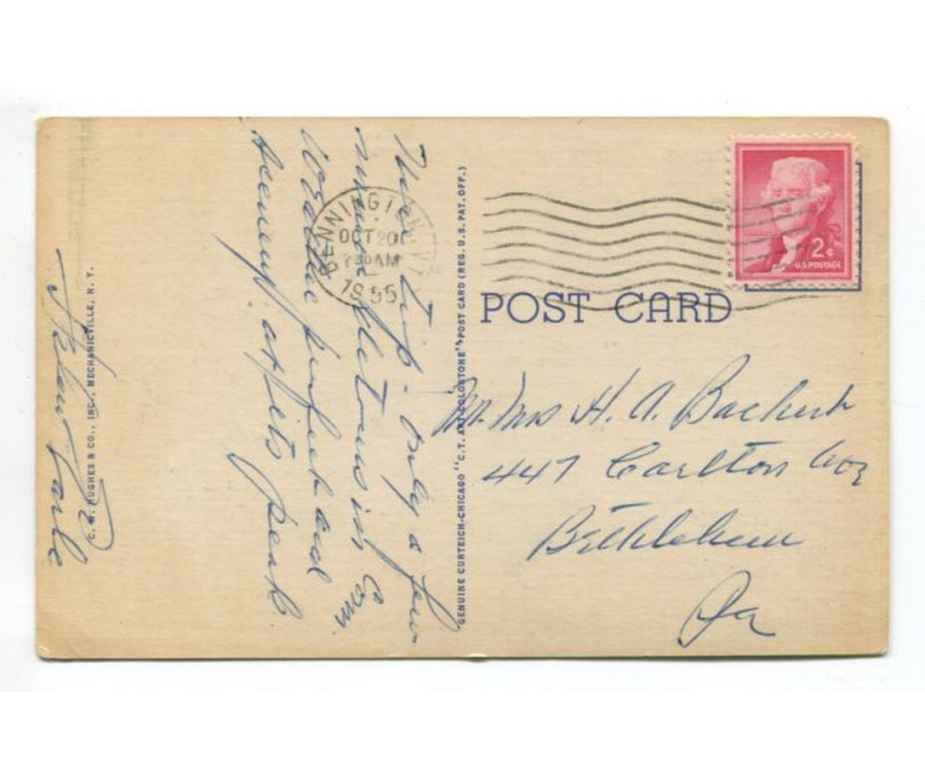 Nice trip - only a few
more
Weather perfect and
scenery at its peak
BENNINGTON
OCT 20
7 30 AM
1955
2¢
U.S. POSTAGE
POST CARD
Mr. Mrs H. A. Bachert
447 Carlton Ave
Bethlehem
Pa
GENUINE CURTEICH-CHICAGO "C.T. ART-COLORTONE" POST CARD (REG. U.S. PAT. OFF.)
C. W. HUGHES & CO., INC., MECHANICVILLE, N. Y.